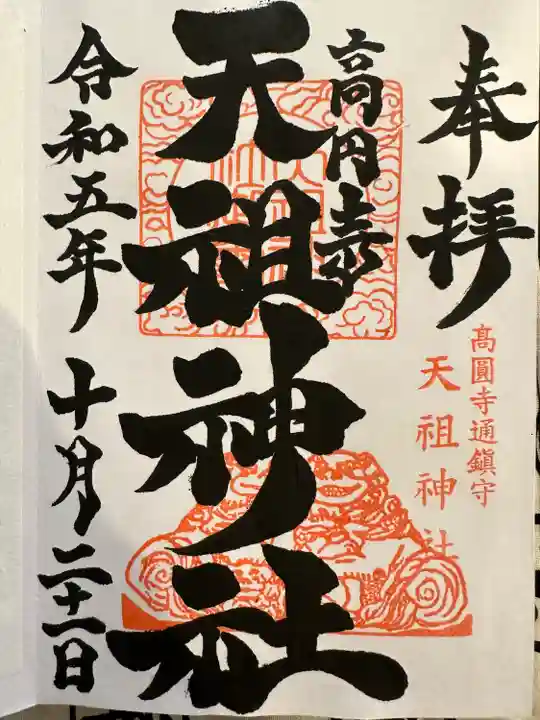 奉拝
髙圓寺通鎮守
天祖神社
高円寺
天祖神社
令和五年 十月二十一日